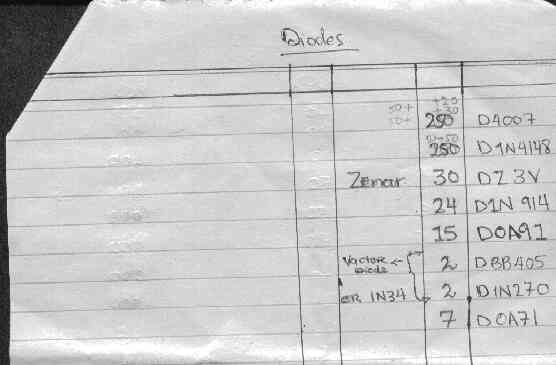 Diodes
50+ +20
50+ +30
250 D4007
250 D1N4148
Zenar 30 DZ 3V
24 D1N 914
15 DOA91
Vactor ← 2 DBB405
Diode
OR 1N34 2 D1N270
7 DOA71